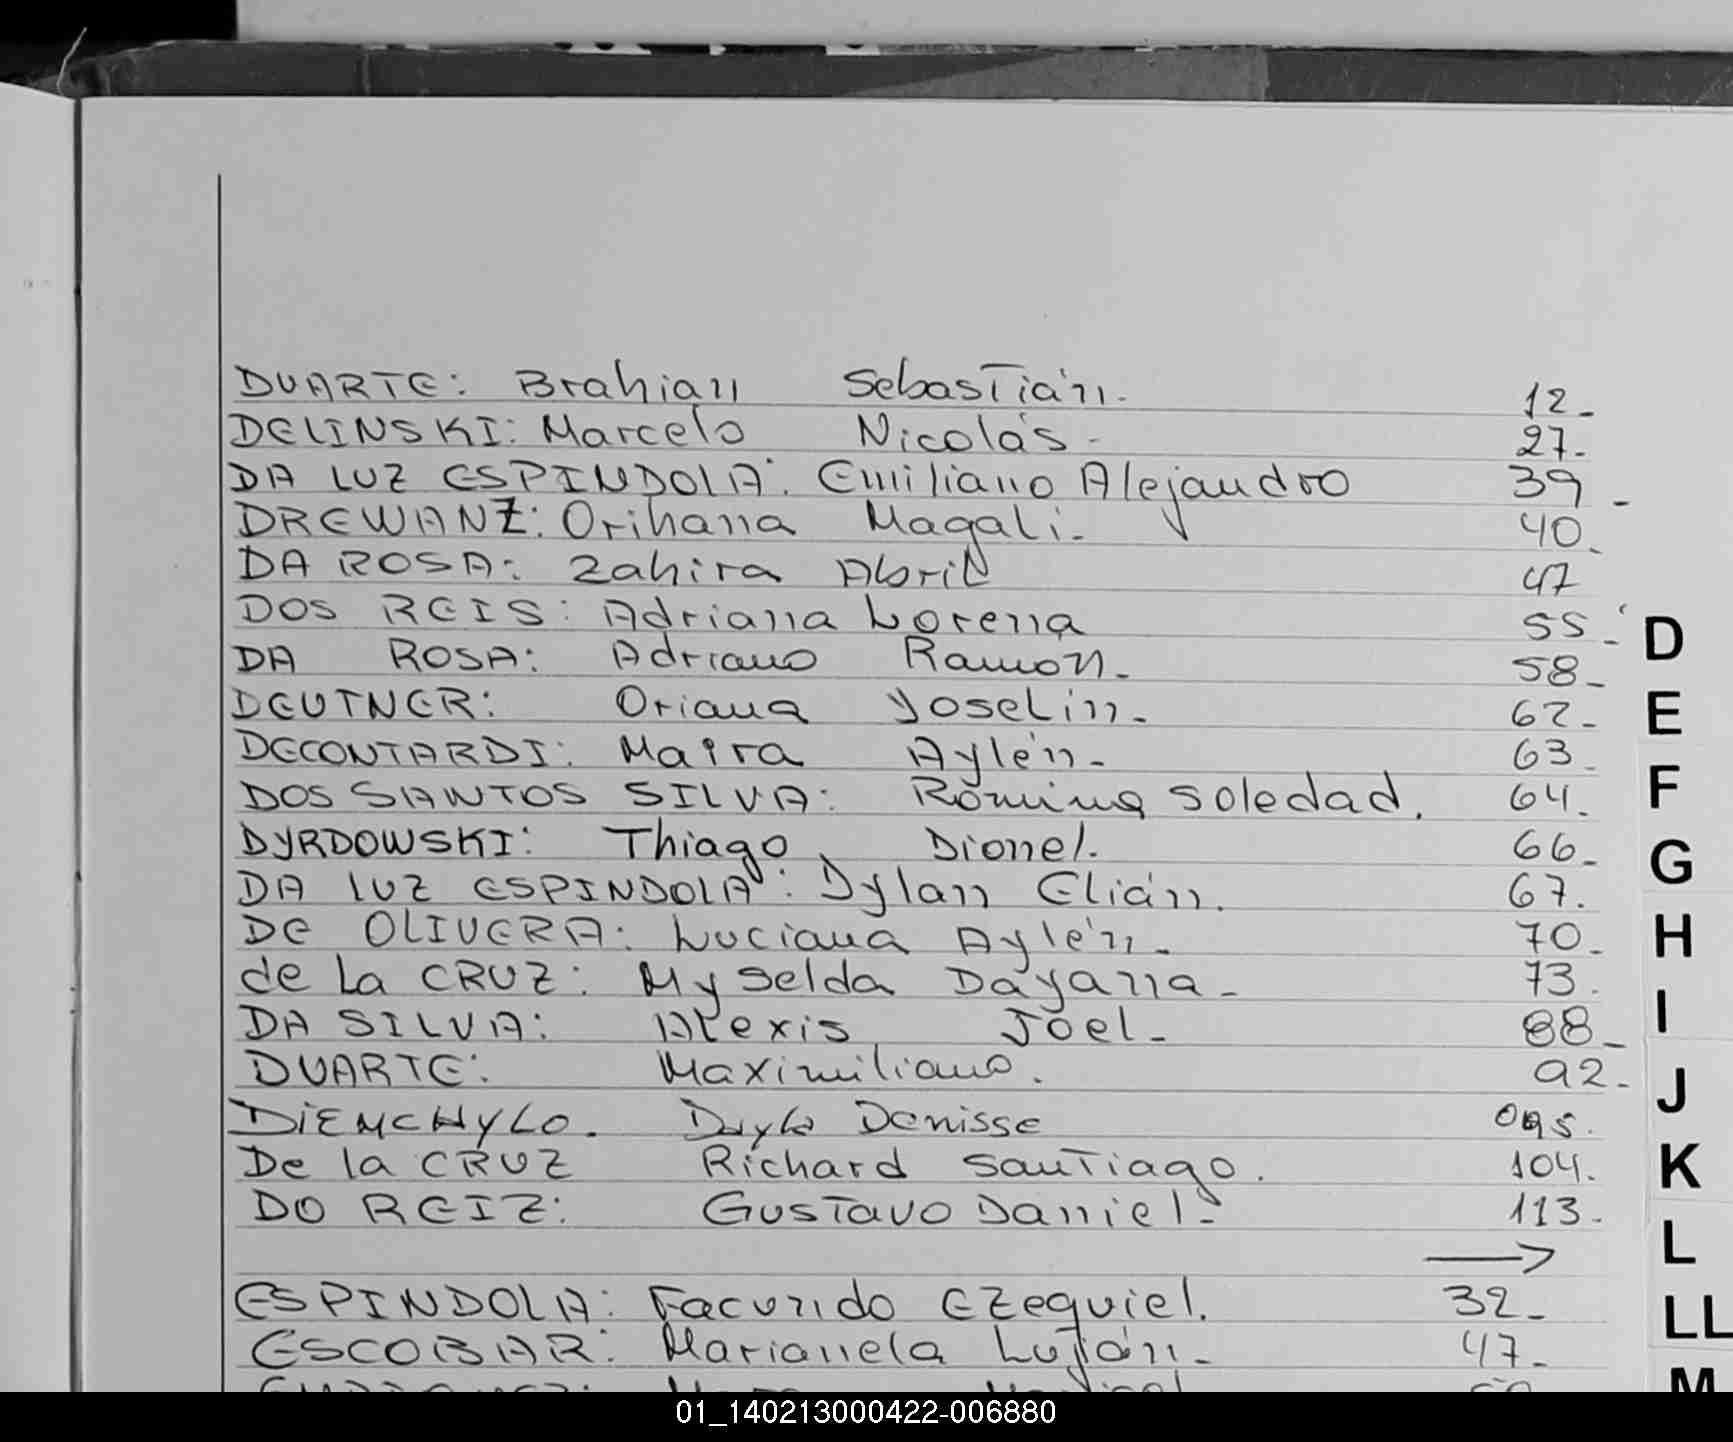 DUARTE: Brahian Sebastián. 12-
DELINSKI: Marcelo Nicolás- 27-
DA LUZ ESPINDOLA: Emiliano Alejandro 39-
DREWANZ: Orihana Magali- 40-
DA ROSA: Zahira Abril 47
DOS REIS: Adriana Lorena 55-
D
DA ROSA: Adriano Ramon- 58-
DEUTNER: Oriana Yoselin- 62-
E
DECONTARDI: Maira Aylén- 63-
DOS SANTOS SILVA: Romina Soledad. 64.
F
DYRDOWSKI: Thiago Dionel. 66-
G
DA LUZ ESPINDOLA: Dylan Elián. 67.
DE OLIVERA: Luciana Aylén- 70-
H
de La CRUZ: Myselda Dayana- 73.
I
DA SILVA: Alexis Joel- 88-
DUARTE: Maximiliano. 92-
J
DiEMCHYLO. Denisse 095.
De la CRUZ Richard Santiago. 104.
K
DO REIZ: Gustavo Daniel- 113-
L
→
ESPINDOLA: Facundo Ezequiel. 32-
LL
ESCOBAR: Marianela Luján- 47-
M
01_140213000422-006880